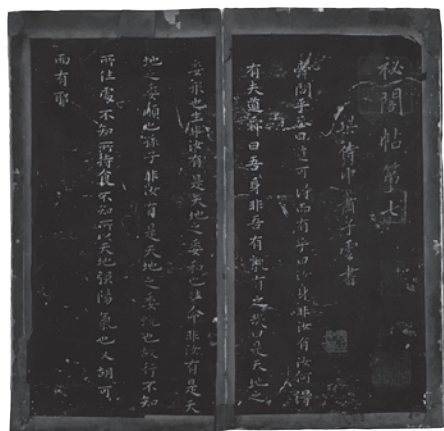 祕閣帖第七
梁侍中蕭子雲書
舜問乎丞曰道可得而有乎曰汝身非汝有汝何得
有夫道舜曰吾身非吾有孰有之哉曰是天地之
委形也生非汝有是天地之委和也性命非汝有是天
地之委順也孫子非汝有是天地之委蛻也故行不知
所往處不知所持食不知所以天地强陽氣也又胡可
而有耶